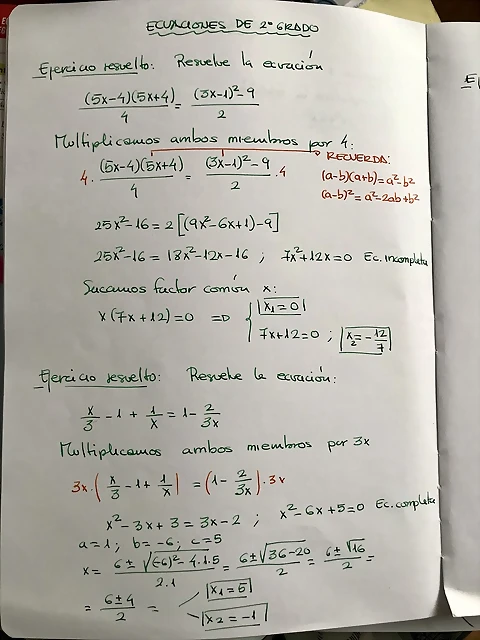 ECUACIONES DE 2º GRADO
Ejercicio resuelto: Resuelve la ecuación
(5x-4)(5x+4)/4 = (3x-1)²-9/2
Multiplicamos ambos miembros por 4:
RECUERDA:
4. (5x-4)(5x+4)/4 = (3x-1)²-9/2 .4
(a-b)(a+b)=a²-b²
(a-b)²=a²-2ab+b²
25x²-16=2[(9x²-6x+1)-9]
25x²-16=18x²-12x-16 ; 7x²+12x=0 Ec. incompleta
Sacamos factor común x:
x(7x+12)=0 => { x₁=0
7x+12=0 ; x₂=-12/7
Ejercicio resuelto: Resuelve la ecuación:
x/3 - 1 + 1/x = 1 - 2/3x
Multiplicamos ambos miembros por 3x
3x.(x/3 - 1 + 1/x) = (1 - 2/3x).3x
x²-3x+3=3x-2 ; x²-6x+5=0 Ec. completa
a=1; b=-6; c=5
x= 6±√(-6)²-4.1.5/2.1 = 6±√36-20/2 = 6±√16/2 =
= 6±4/2 = x₁=5
x₂=-1
E